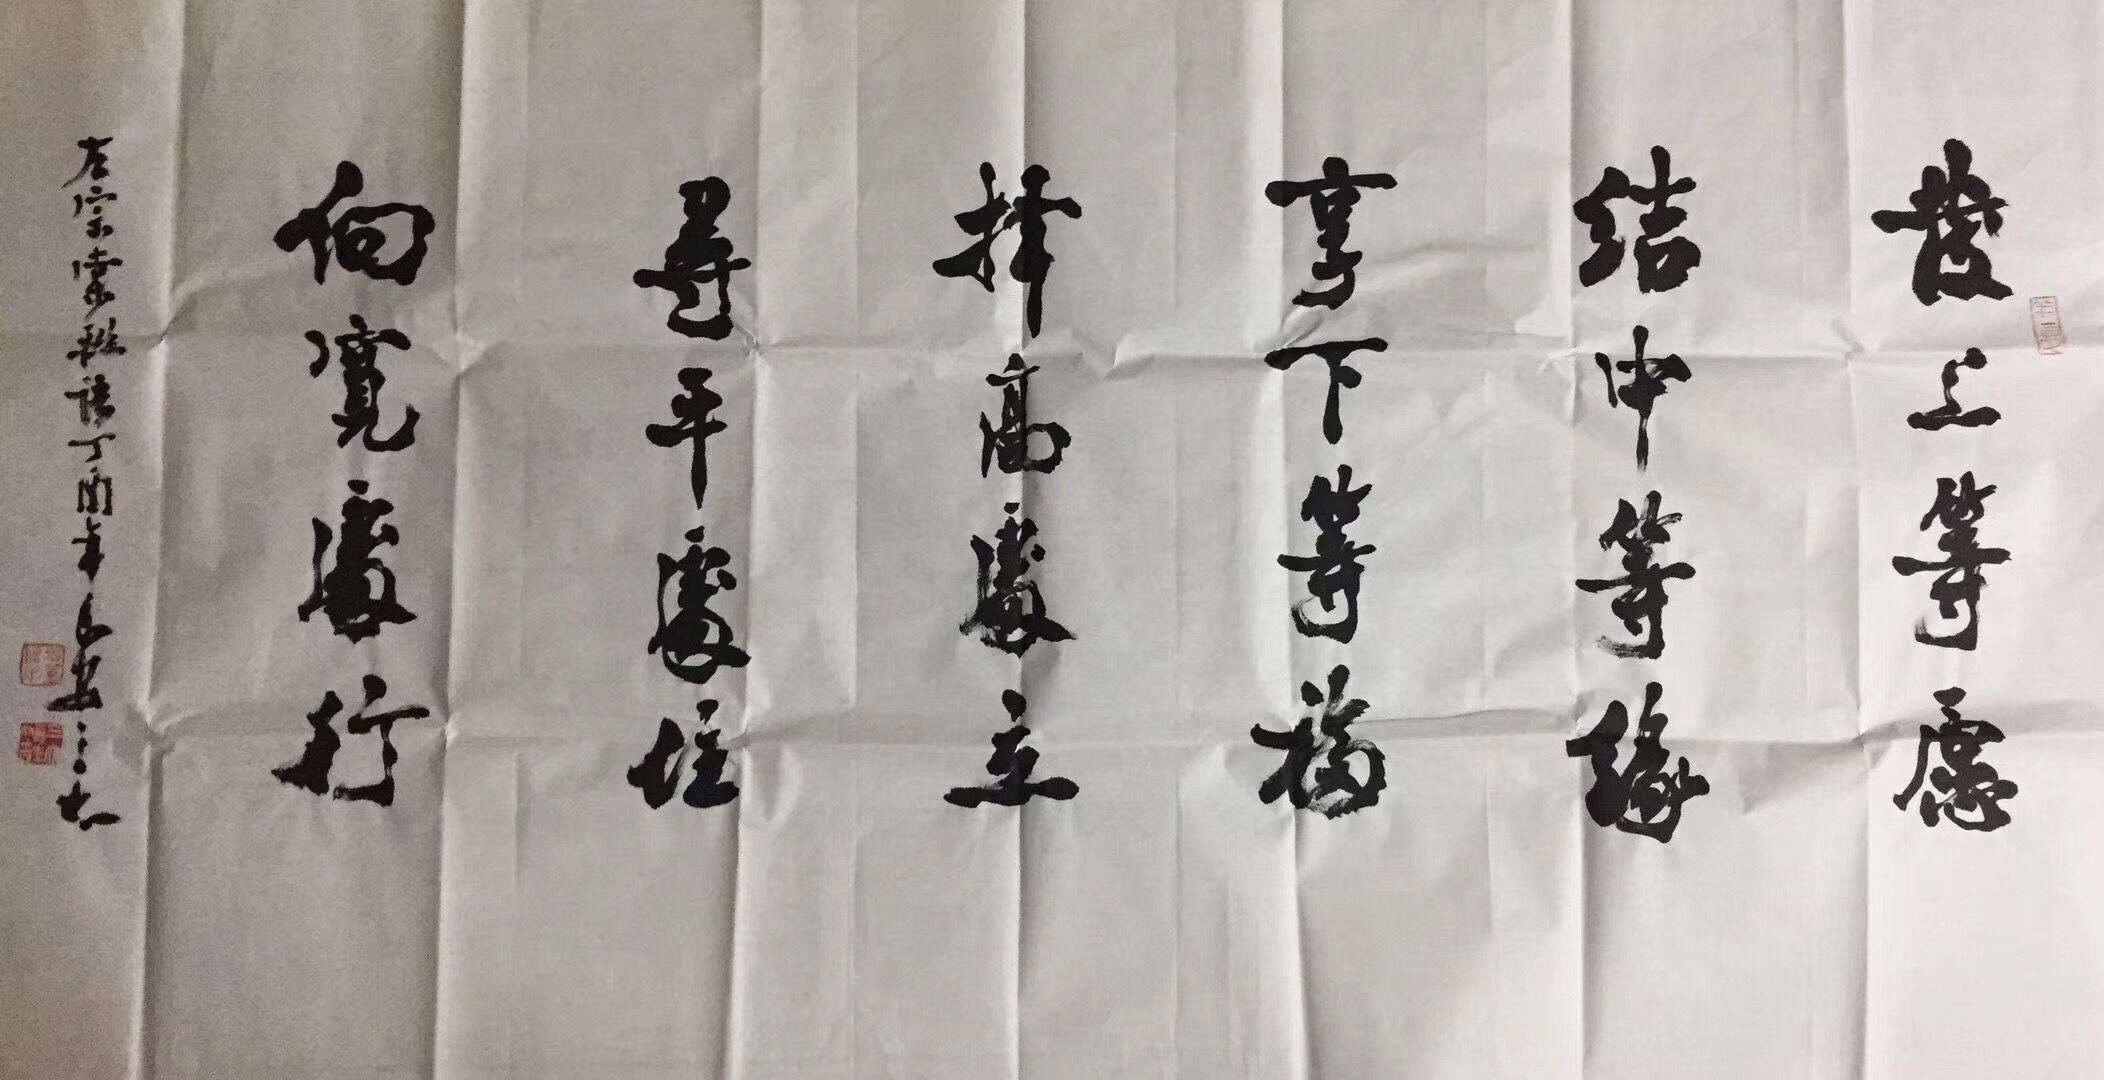 發上等愿
结中等缘
享下等福
择高處立
尋平處住
向寬處行
左宗棠联语丁酉年